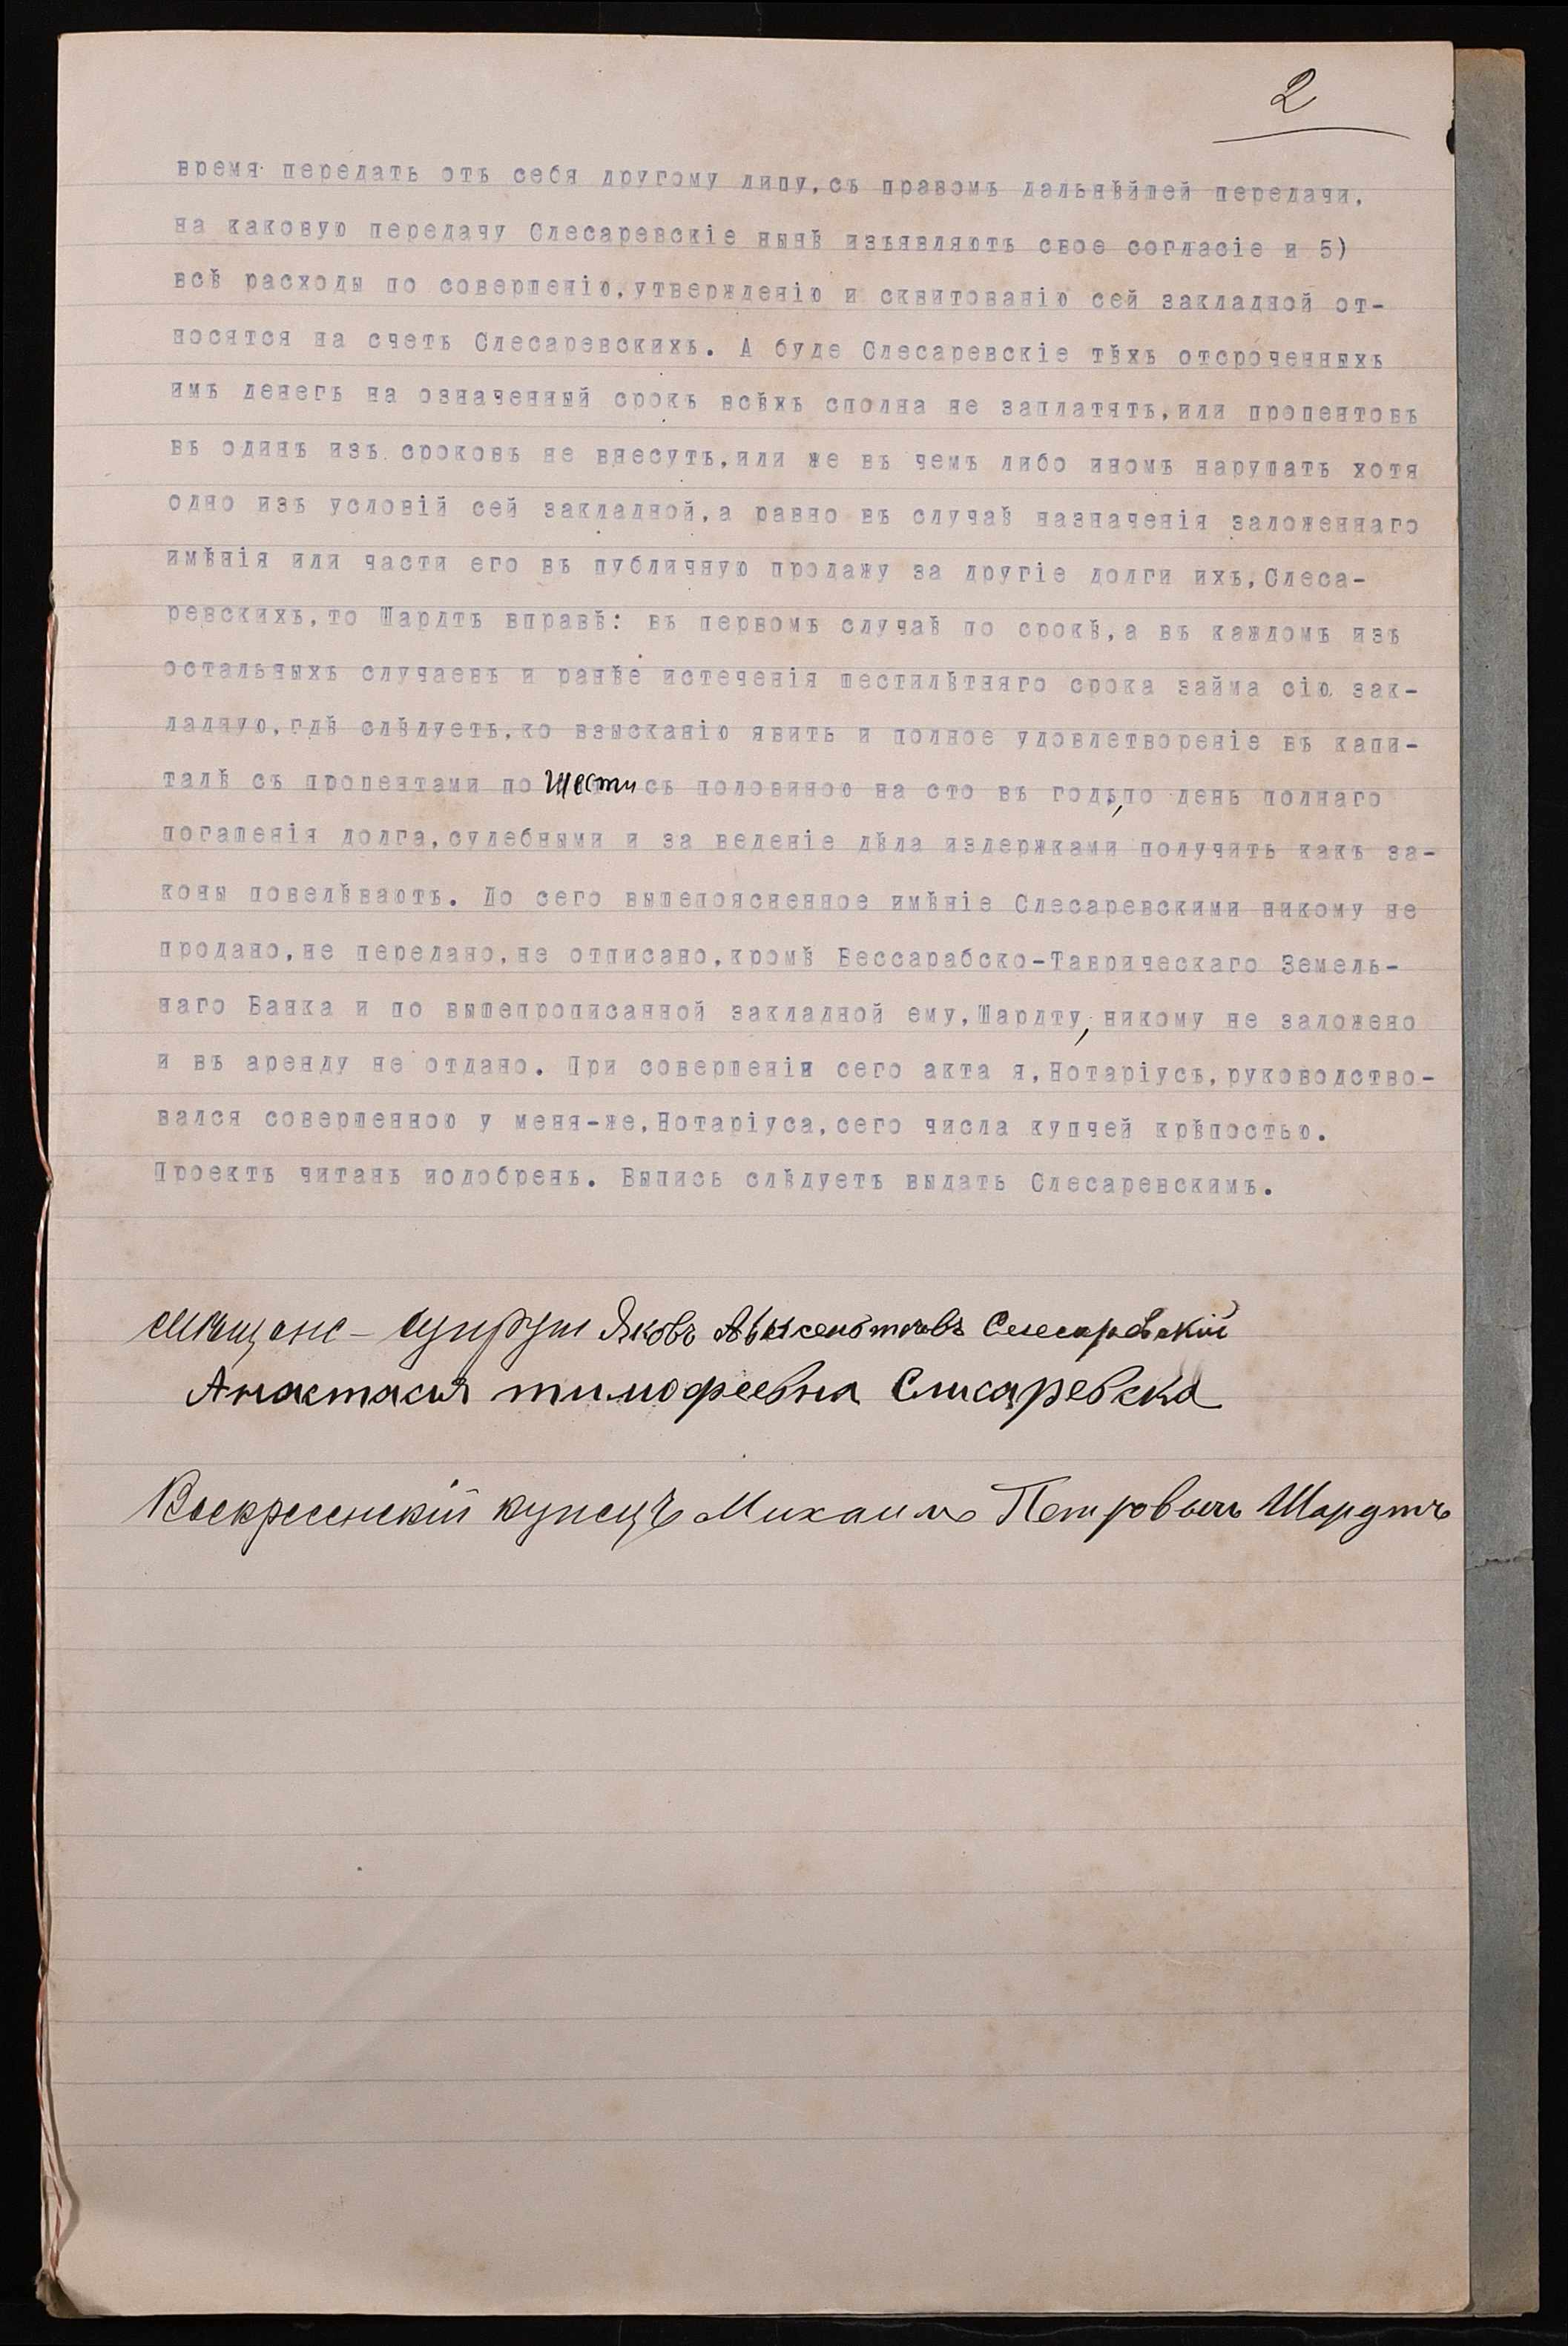 2
время передать отъ себя другому лицу,съ правомъ дальнѣйшей передачи,
на каковую передачу Слесаревскіе нынѣ изъявляютъ свое согласіе и 5)
всѣ расходы по совершенію,утвержденію и сквитованію сей закладной от-
носятся на счетъ Слесаревскихъ. А буде Слесаревскіе тѣхъ отсроченныхъ
имъ денегъ на означенный срокъ всѣхъ сполна не заплатятъ,или процентовъ
въ одинъ изъ сроковъ не внесутъ,или же въ чемъ либо иномъ нарушатъ хотя
одно изъ условій сей закладной,а равно въ случаѣ назначенія заложеннаго
имѣнія или части его въ публичную продажу за другіе долги ихъ,Слеса-
ревскихъ,то Шардтъ вправѣ: въ первомъ случаѣ по срокѣ,а въ каждомъ изъ
остальныхъ случаевъ и ранѣе истеченія шестилѣтняго срока займа сію зак-
ладную,гдѣ слѣдуетъ,ко взысканію явить и полное удовлетвореніе въ капи-
талѣ съ процентами по шести съ половиною на сто въ годъ,по день полнаго
погашенія долга,судебными и за веденіе дѣла издержками получить какъ за-
коны повелѣваютъ. До сего вышепоясненное имѣніе Слесаревскими никому не
продано,не передано,не отписано,кромѣ Бессарабско-Таврическаго Земель-
наго Банка и по вышепрописанной закладной ему,Шардту,никому не заложено
и въ аренду не отдано. При совершеніи сего акта я,Нотаріусъ,руководство-
вался совершенною у меня-же,Нотаріуса,сего числа купчей крѣпостью.
Проектъ читанъ иодобренъ. Выпись слѣдуетъ выдать Слесаревскимъ.
Яковъ Слесаревскій
тимофеевна Слисаревска
Воскресенскій купецъ Михаилъ Петровичъ Шардтъ